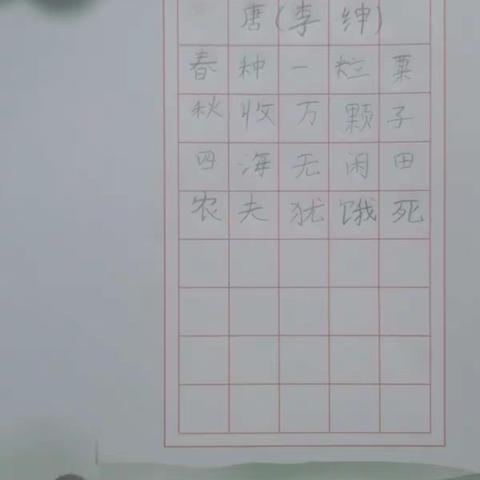 唐(李绅)
春种一粒粟
秋收万颗子
四海无闲田
农夫犹饿死